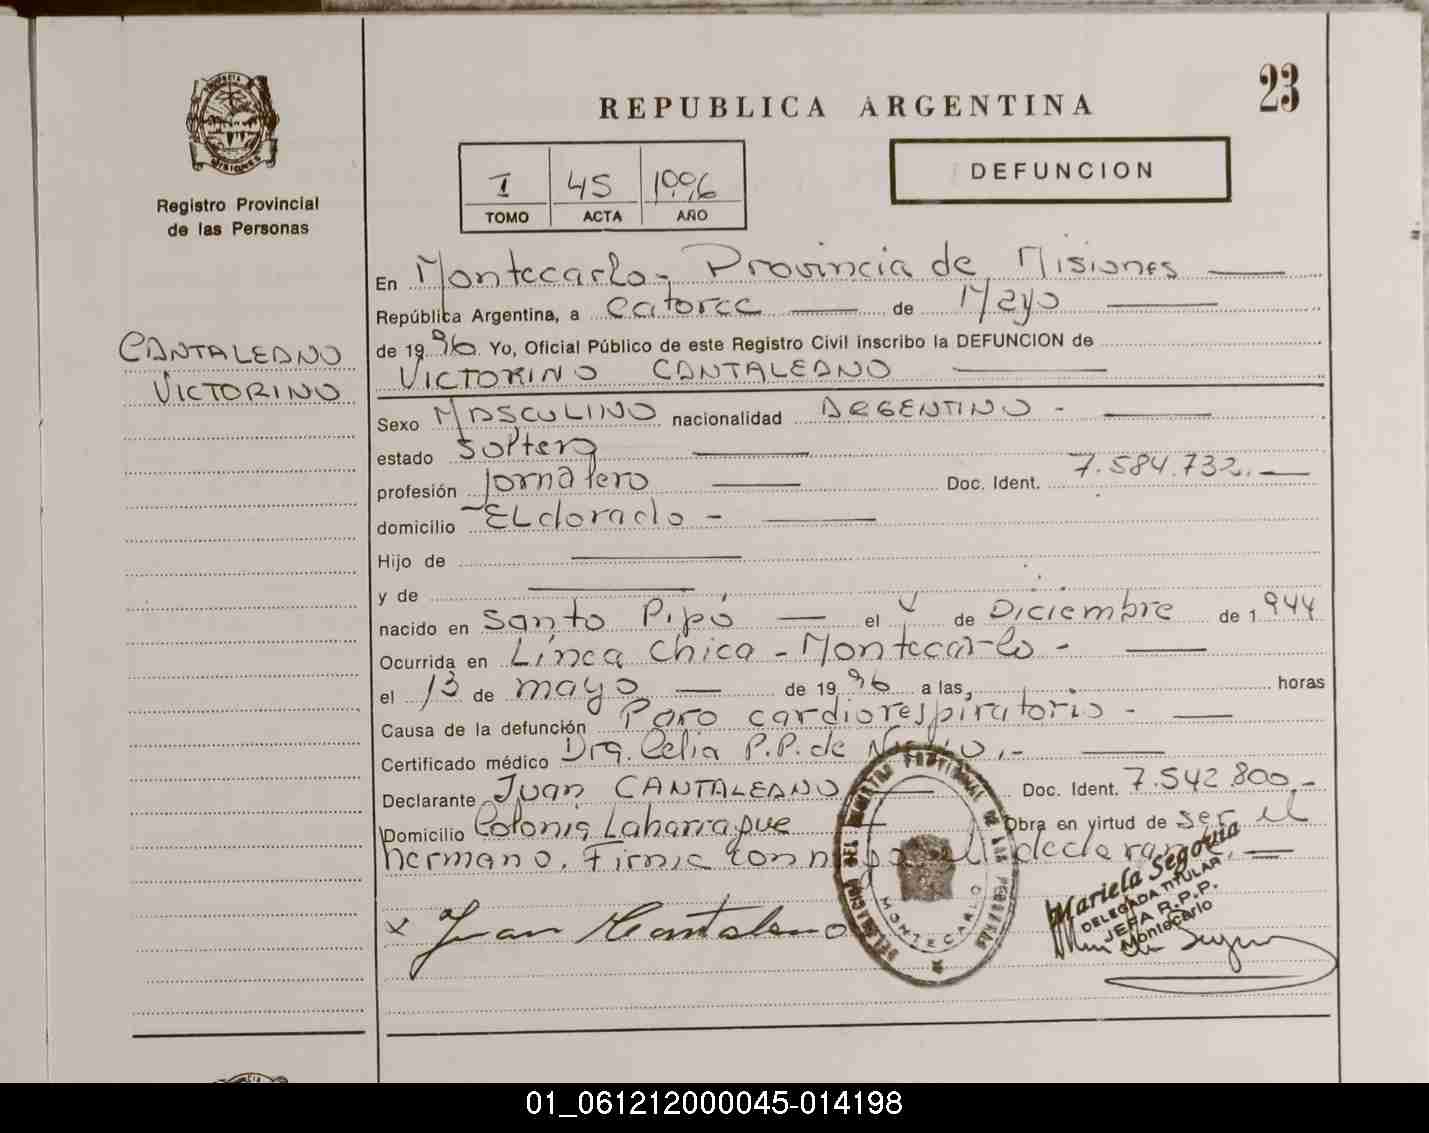 23
REPUBLICA ARGENTINA
PROVINCIA
MISIONES
Registro Provincial
de las Personas
DEFUNCION
I 45 1996
TOMO ACTA AÑO
CANTALEANO
VICTORINO
En Montecarlo - Provincia de Misiones
República Argentina, a catorce de Mayo
de 1996 Yo, Oficial Público de este Registro Civil inscribo la DEFUNCION de
VICTORINO CANTALEANO
Sexo MASCULINO nacionalidad ARGENTINO -
estado Soltero
profesión Jornalero Doc. Ident. 7.584.732.
domicilio ELdorado -
Hijo de
y de
nacido en Santo Pipó el de Diciembre de 1944
Ocurrida en Línea Chica - Montecarlo -
el 13 de mayo de 1996 a las, horas
Causa de la defunción Paro cardiorespiratorio -
Certificado médico Dra. Celia P.P. de
Declarante Juan CANTALEANO Doc. Ident. 7.542.800.-
Domicilio Colonia Laharrague Obra en virtud de ser el
hermano. Firma conmigo el declarante.
x Juan Cantaleano
DELEGACION DEL REGISTRO PROVINCIAL DE LAS PERSONAS
MONTECARLO
Mariela Segovia
DELEGADA TITULAR
JEFA R.P.P.
Montecarlo
01_061212000045-014198